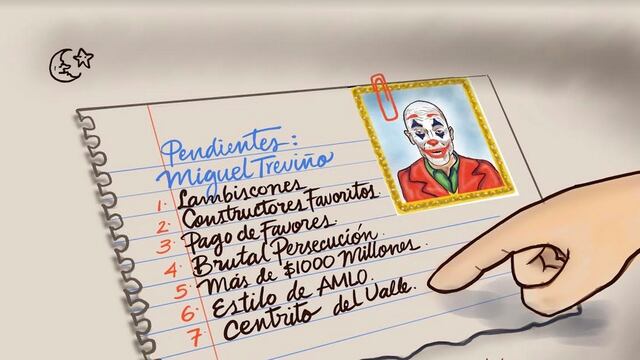 Pendientes:
Miguel Treviño
1. Lambiscones
2. Constructores Favoritos.
3. Pago de Favores.
4. Brutal Persecución.
5. Más de $1000 Millones.
6. Estilo de AMLO.
7 Centrito del Valle.